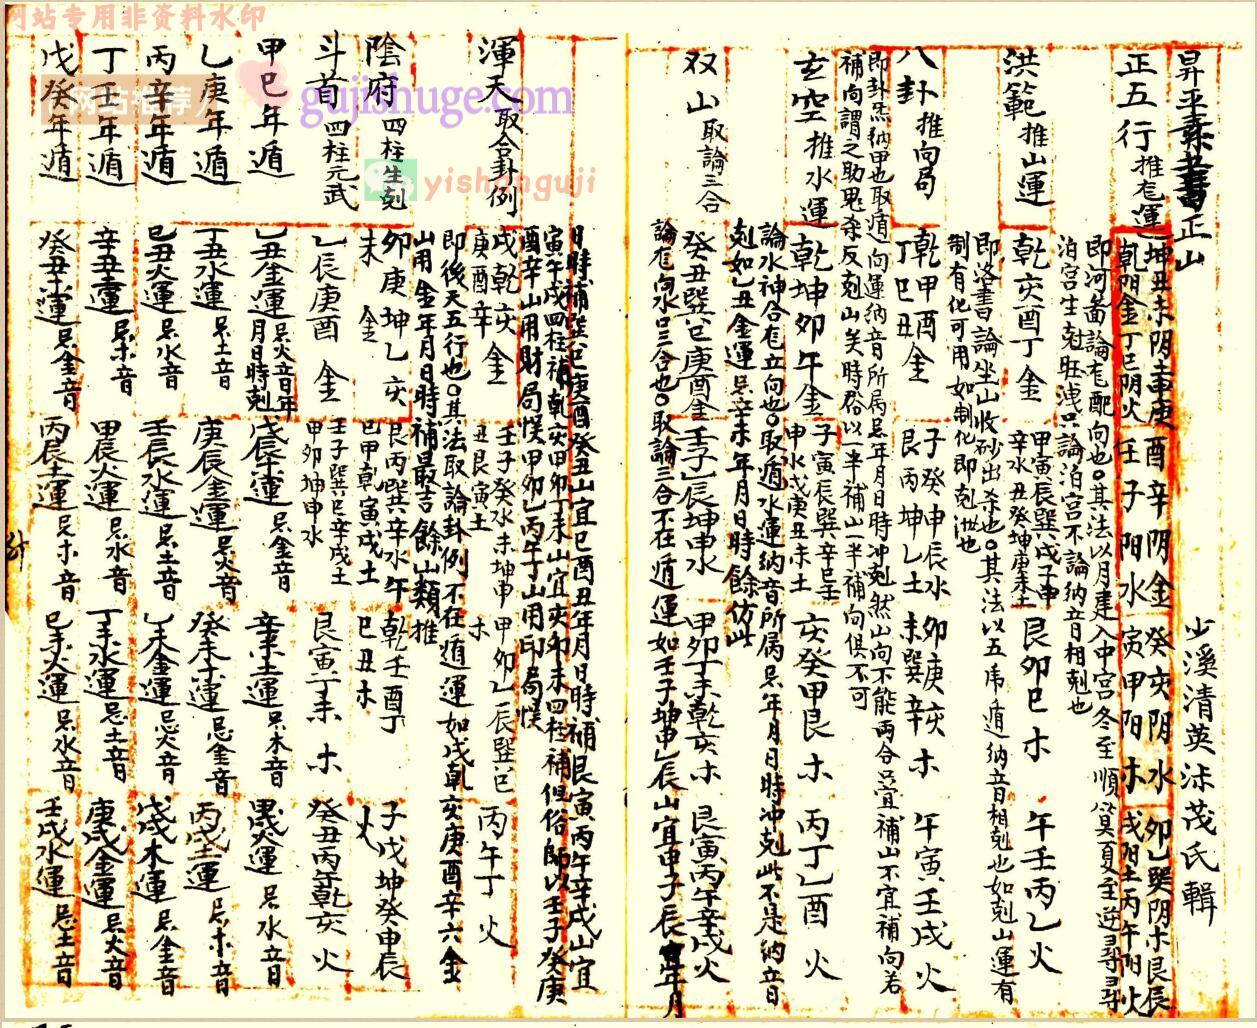 网站专用非资料水印
gujishuge.com
yishenguji
昇平 正山
少溪清英沭茂氏輯
正五行 推龙運
坤丑未阴 庚酉辛阴金癸亥阴水卯乙巽阴木艮辰
乾阴金丁巳阴火壬子阳水寅甲阳木戌阳土丙午阳火
即河畣論龙配向也。其法以月建入中宫冬至順 夏至逆尋
泊宫生剋旺洩只論泊宫不論納音相剋也
洪範 推山運
乾亥酉丁金
甲寅辰巽戌子申
辛水丑癸坤庚未土
艮卯巳木
午壬丙乙火
即洛書論坐山收砂出杀也。其法以五虎遁納音相剋也如剋山運有
制有化可用如制化即剋泄也
八卦 推向局
乾甲酉金
丁巳丑
子癸申辰水
艮丙坤乙土
卯庚亥
未巽辛木
午寅壬戌火
即卦炁納甲也取遁向運納音所属忌年月日時冲剋然山向不能两合 宜補山不宜補向若
補向謂之助鬼杀反剋山矣時俗以一半補山一半補向俱不可
玄空 推水運
乾坤卯午金
子寅辰巽辛
申水戊庚丑未土
亥癸甲艮木
丙丁乙酉火
論水神合龙立向也。取遁水運納音所属忌年月日時冲剋此不是納音
剋如乙丑金運忌辛未年月日時餘仿此
双山 取論三合
癸丑巽巳庚酉金
壬子乙辰坤申水
甲卯丁未乾亥木
艮寅丙午辛戌火
論龙向水口三合也。取論三合不在遁運如壬子坤申乙辰山宜申子辰 年月
日時補巽巳庚酉癸丑山宜巳酉丑年月日時補艮寅丙午辛戌山宜
寅午戌四柱補乾亥甲卯丁未山宜亥卯未四柱補但俗師以壬子癸庚
酉辛山用財局悮甲卯乙丙午丁山用印局悮
渾天 取合卦例
戌乾亥金
庚酉辛
壬子癸水未坤申
丑艮寅土
甲卯乙辰巽巳
木
丙午丁火
即後天五行也。其法取論卦例不在遁運如戌乾亥庚酉辛六金
山用金年月日時補最吉餘山類推
陰府 四柱生剋
卯庚坤乙亥
未 金
艮丙巽辛水午
巳甲乾寅戌土
乾壬酉丁
巳丑木
子戊坤癸申辰
火
斗首 四柱元武
乙辰庚酉金
壬子巽巳辛戌土
甲卯坤申水
艮寅丁未木
癸丑丙午乾亥火
甲巳年遁
乙丑金運忌火音年
月日時剋
戊辰木運忌金音
辛未土運忌木音
甲戌火運忌水音
乙庚年遁
丁丑水運忌土音
庚辰金運忌火音
癸未木運忌金音
丙戌土運忌木音
丙辛年遁
己丑火運忌水音
壬辰水運忌土音
乙未金運忌火音
戊戌木運忌金音
丁壬年遁
辛丑土運忌木音
甲辰火運忌水音
丁未水運忌土音
庚戌金運忌火音
戊癸年遁
癸丑木運忌金音
丙辰土運忌木音
己未火運忌水音
壬戌水運忌土音